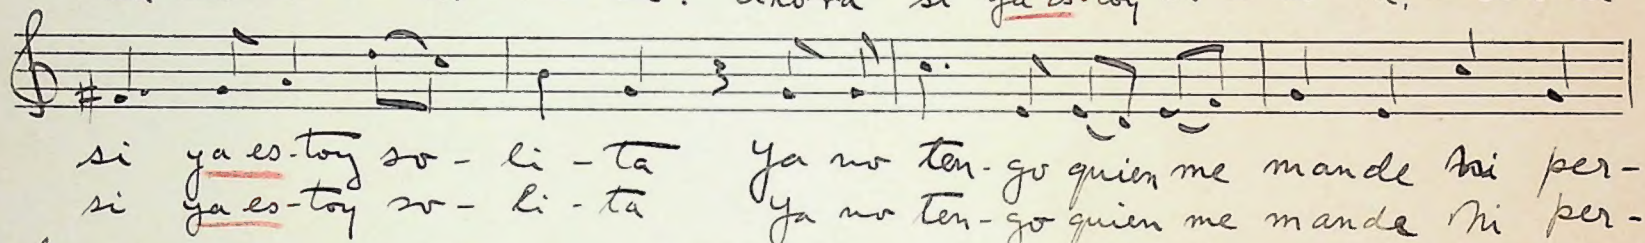 ahora si ya es-toy
si ya es-toy so - li - ta Ya no ten-go quien me mande ni per-
si ya es-toy so - li - ta ya no ten-go quien me mande ni per-